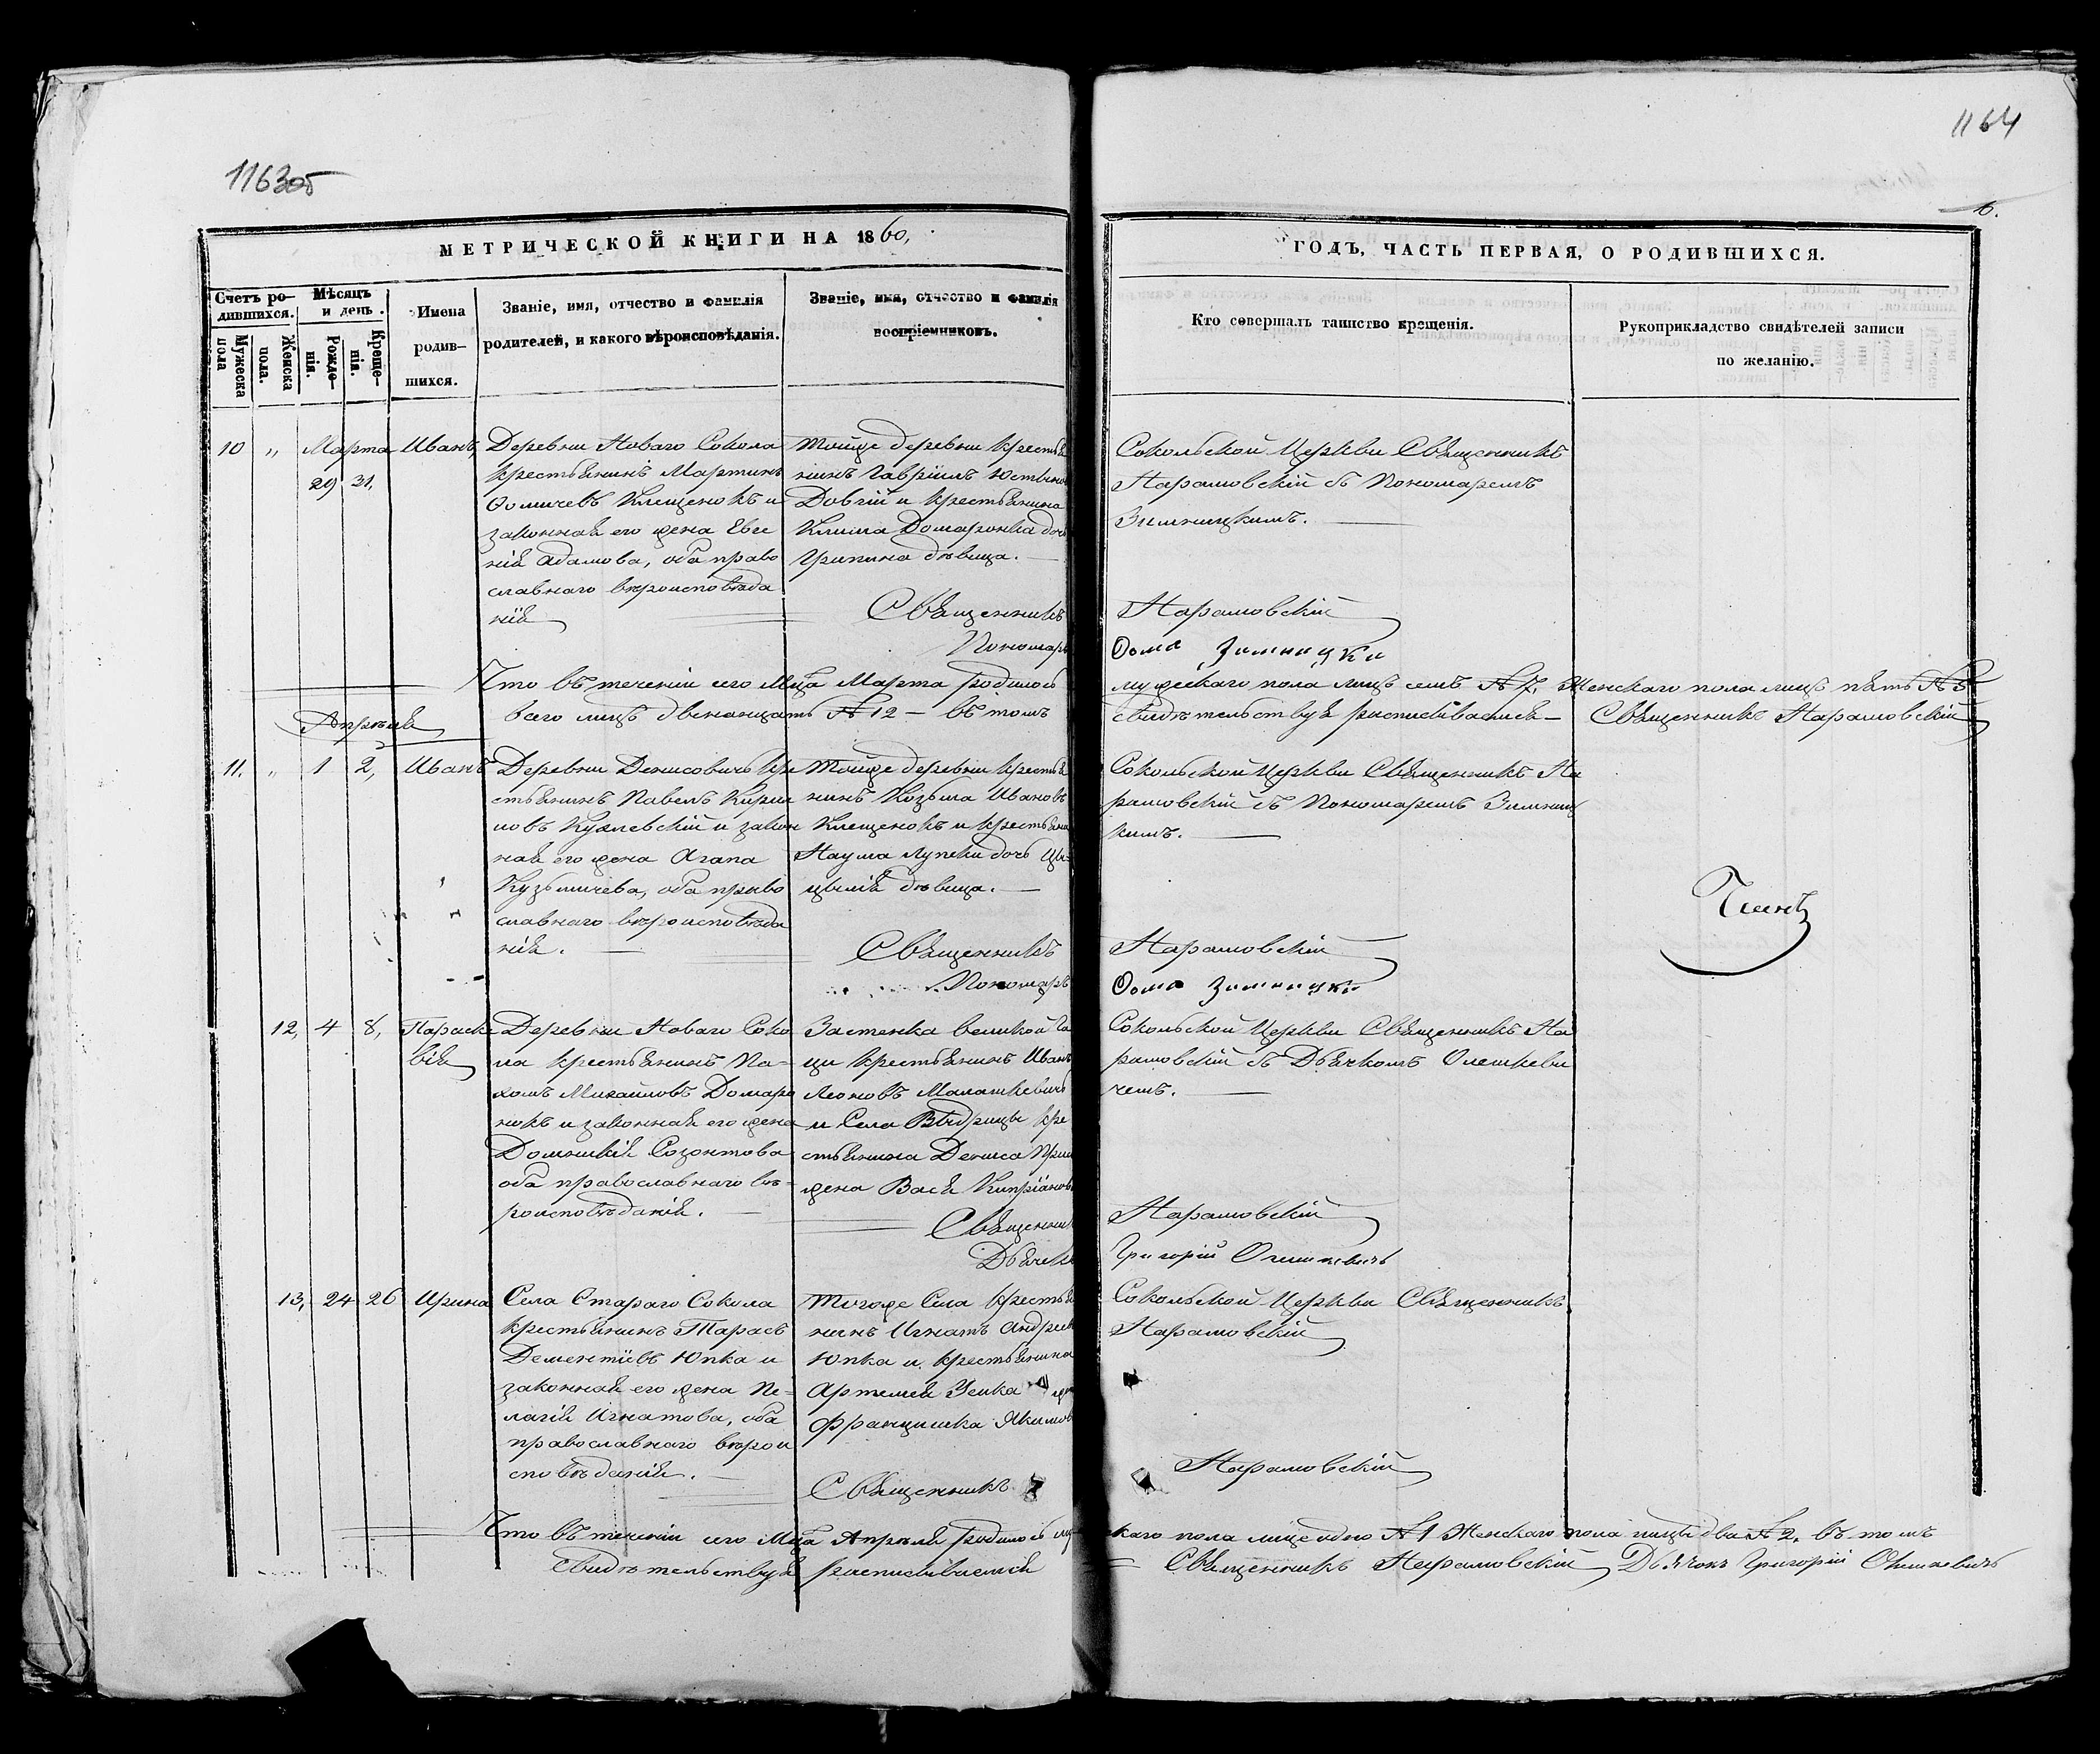 1163об
1164
6.
МЕТРИЧЕСКОЙ КНИГИ НА 1860,
ГОДЪ, ЧАСТЬ ПЕРВАЯ, О РОДИВШИХСЯ.
Счетъ ро-
дившихся.
Мужеска пола
Женска пола.
Мѣсяцъ
и день.
Рожде-
нія.
Креще-
нія.
Имена
родив-
шихся.
Званіе, имя, отчество и фамилія
родителей, и какого вѣроисповѣданія.
Званіе, имя, отчество и фамилія
воспріемниковъ.
Кто совершалъ таинство крещенія.
Рукоприкладство свидѣтелей записи
по желанію.
10 „ Марта
29 31,
Иванъ,
Деревни Новаго Сокола
крестьянинъ Мартинъ
Ѳомичевъ Клещенокъ и
законная его жена Евге
нія Адамова, оба право
славнаго вѣроисповѣда
нія
Тойже деревни крестья
нинъ Гавріилъ Юстиновъ
Довгій и крестьянина
Клима Домаронка дочь
Грипина дѣвица.
Священникъ
Пономарь
Сокольской Церкви Священникъ
Нарановскій съ Пономаремъ
Зимницкимъ.
Нарановскій
Ѳома Зимницки
Что въ теченіи сего Мца Марта родилось
всего лицъ двенанцать №12 — въ томъ
мужескаго пола лицъ семь №7, Женскаго пола лицъ пять №5
свидѣтельствуя расписывались — Священникъ Нарановскій
Апрѣля
11. „ 1 2, Иванъ
Деревни Денисовичь кре
стьянинъ Павелъ Кирил
ловъ Кужлевскій и закон
ная его жена Агапа
Кузьмичева, оба право
славнаго вѣроисповѣда
нія.
Тойже деревни крестья
нинъ Козьма Ивановъ
Клещенокъ и крестьяни
Наума Лупеки дочь Це-
цилія дѣвица.
Священникъ
Пономарь
Сокольской Церкви Священникъ На
рановскій съ Пономаремъ Зимниц
кимъ.
Нарановскій
Ѳома Зимницки
12, 4 8, Параске
вія
Деревни Новаго Соко
ла крестьянинъ Па-
хомъ Михайловъ Домаро
нокъ и законная его жена
Домникія Созонтова
оба православнаго вѣ-
роисповѣданія.
Застенка великой
крестьянинъ Иванъ
Леоновъ Малашкевичь
и Села Выдрицы кре
стьянина Дениса
жена Вася Кипріанов
Священни
Дьячек
Сокольской Церкви Священникъ На
рановскій съ Дьячкомъ Олешкеви
чемъ.
Нарановскій
Григорій Олешкевичь
13, 24 26 Ирина
Села Стараго Сокола
крестьянинъ Тарасъ
Дементіевъ Юпка и
законная его жена Пе-
лагія Игнатова, оба
православнаго вѣрои
сповѣданія.
Тогоже Села крестья
нинъ Игнатъ Андреев
Юпка и крестьянина
Артемія Зенка
Францишка Якимов
Священникъ
Сокольской Церкви Священникъ
Нарановскій
Нарановскій
Что въ теченіи сего Мца Апрѣля родилось му
каго пола лице одно №1 Женскаго пола лицы два №2, въ томъ
свидѣтельствуя расписывались
— Священникъ Нарановскій Дьячокъ Григорій Олешкевичь